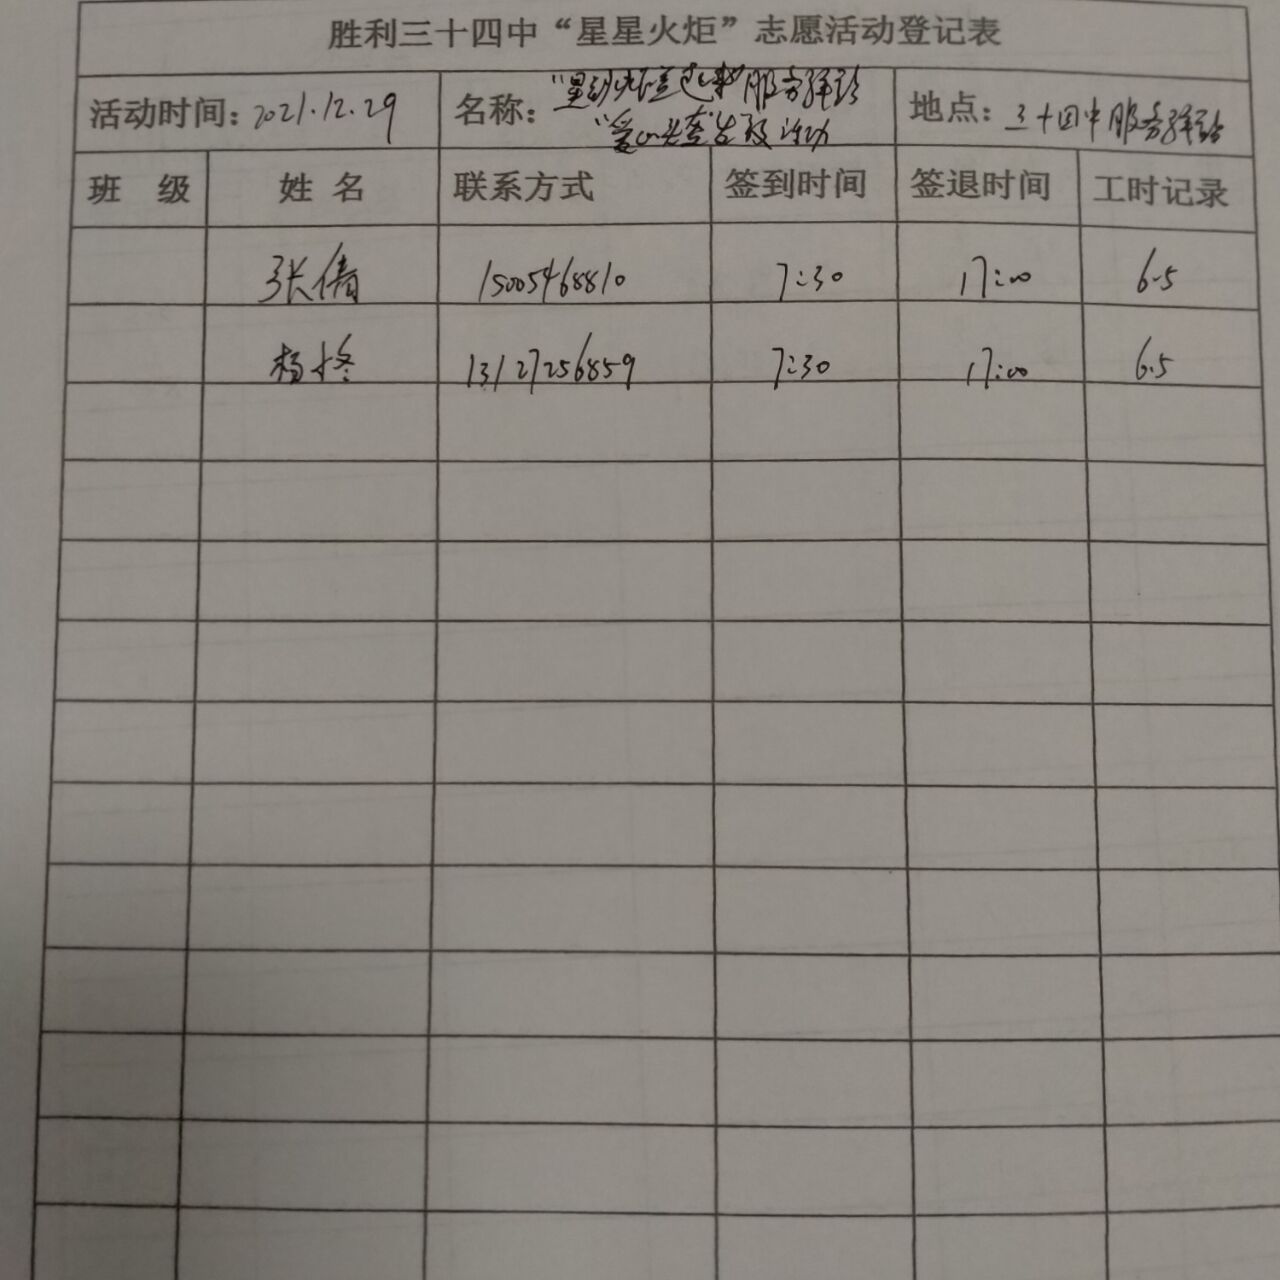 胜利三十四中“星星火炬”志愿活动登记表
活动时间：2021.12.29 名称： 服务驿站 地点：三十四中服务驿站
活动
班 级 姓 名 联系方式 签到时间 签退时间 工时记录
张倩 15005468810 7:30 17:00 6.5
杨 13127256859 7:30 17:00 6.5